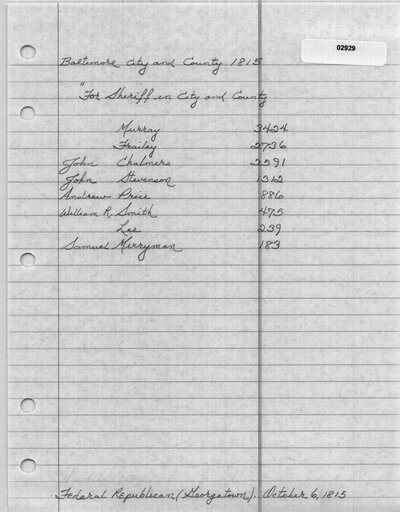 02929
Baltimore City and County 1815
"For Sheriff in City and County
Murray 3424
Frailey 2736
John Chalmers 2591
John Stevenson 1312
Andrew Price 886
William R. Smith 475
Lee 239
Samuel Merryman 183
Federal Republican (Georgetown). October 6, 1815